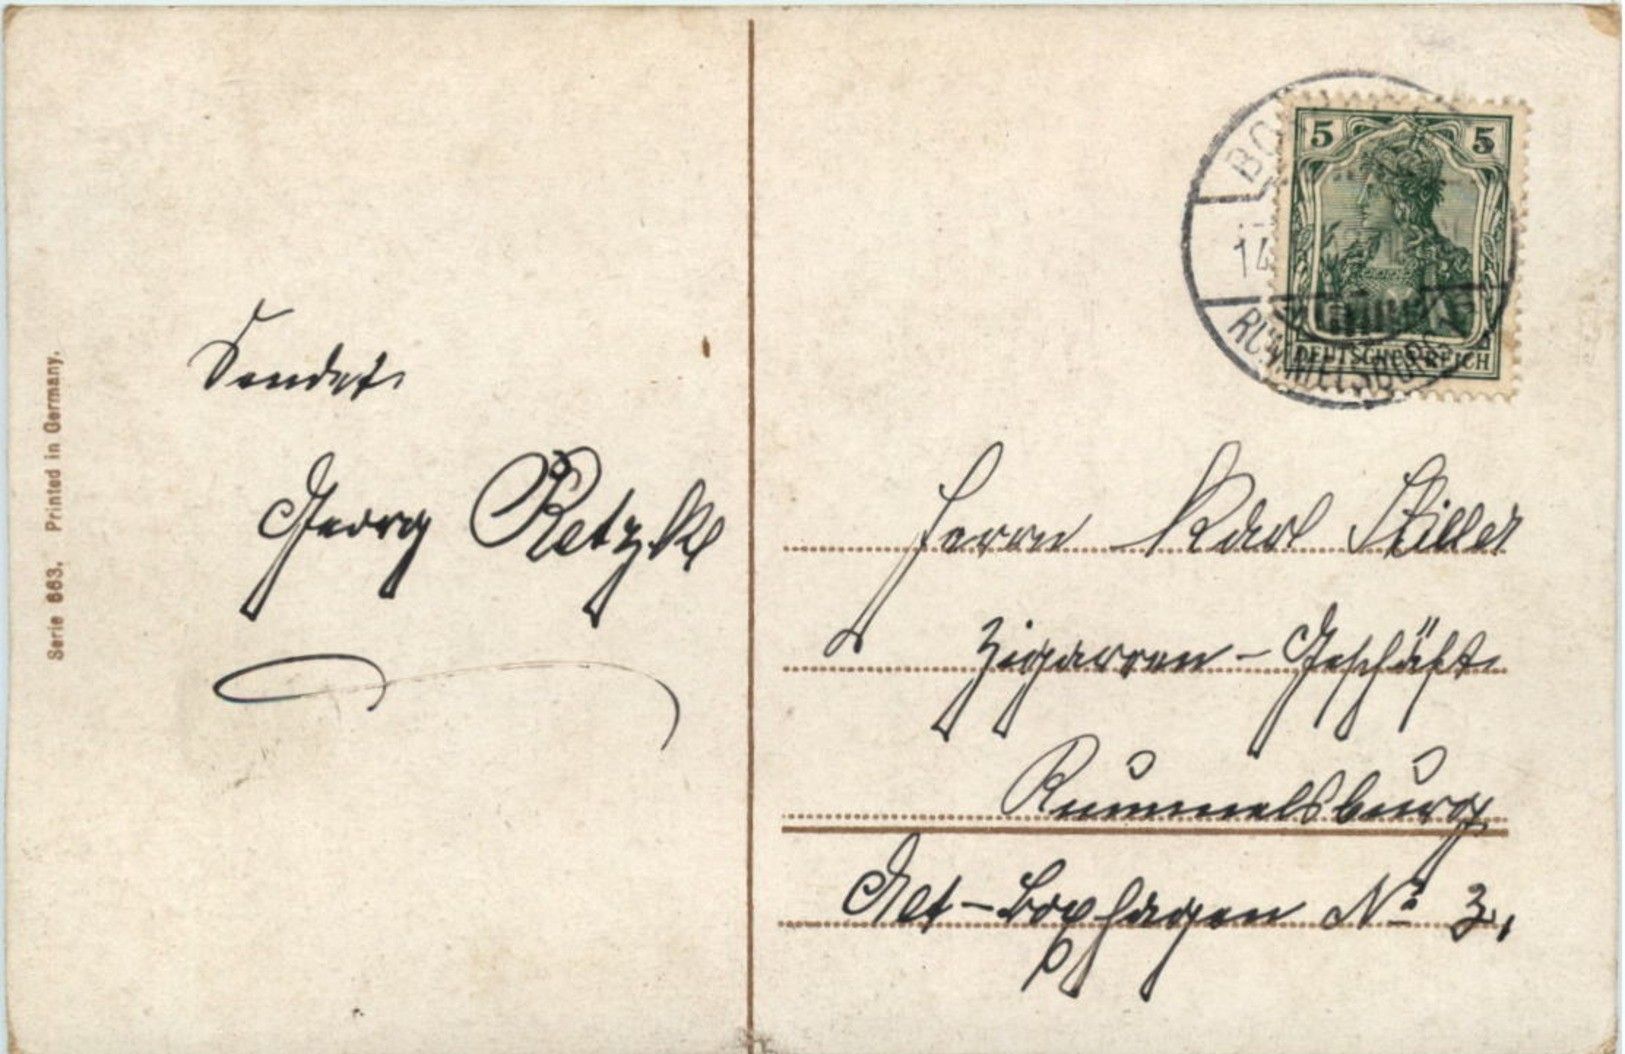 Serie 663. Printed in Germany.
Sendet
Georg Retzke
5 5
DEUTSCHES REICH
RUMMELSBURG
Herrn Karl Stiller
Zigarren-Geschäft
Rummelsburg
Alt-Boxhagen No 3.